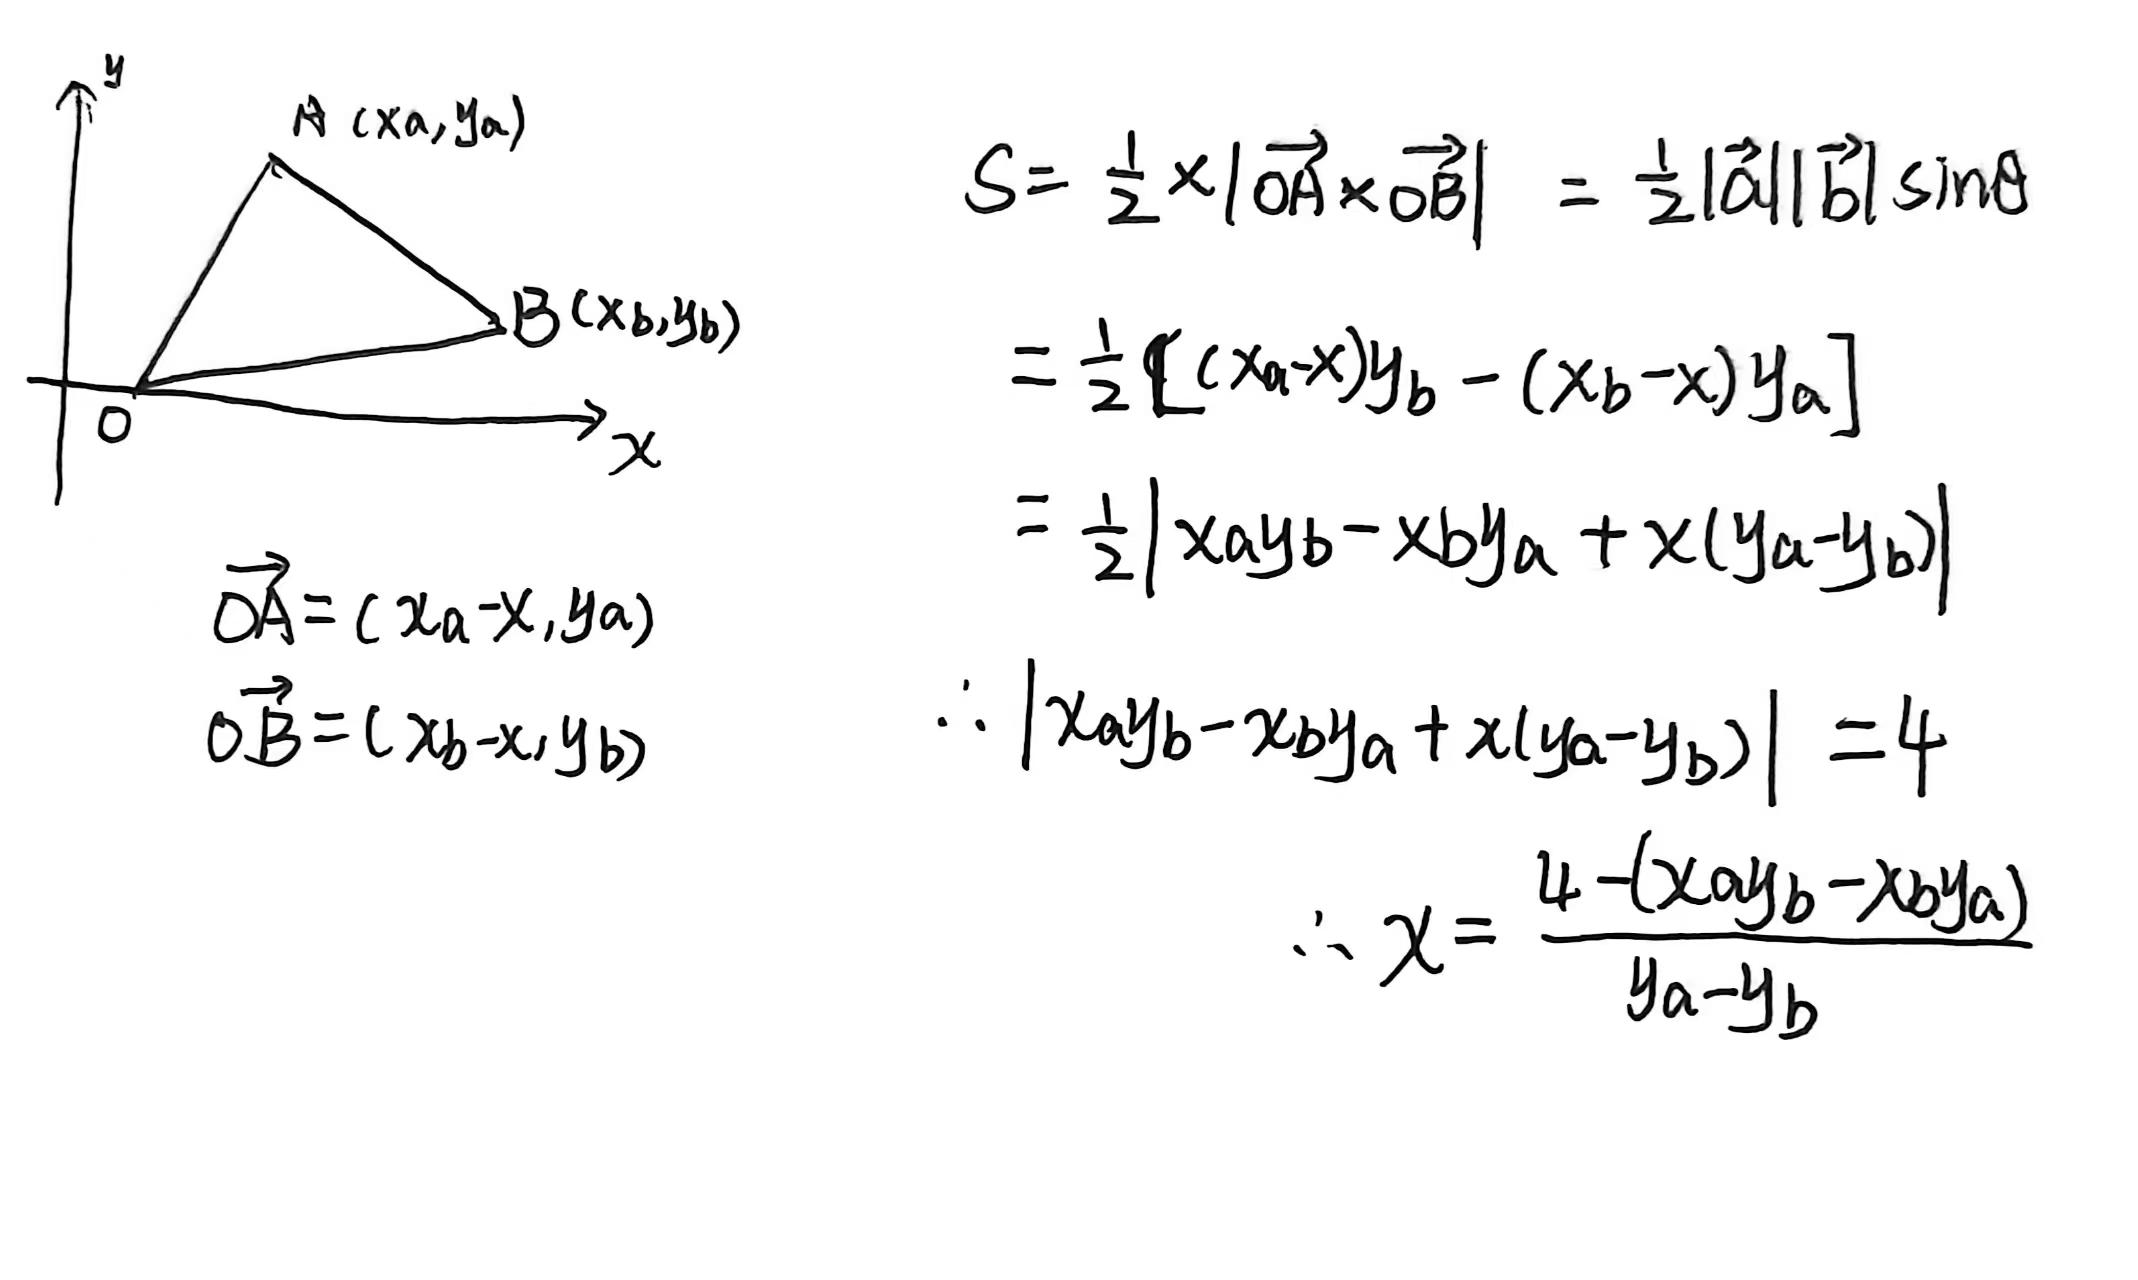 y
A (xa, ya)
B (xb, yb)
O
x
→OA = (xa-x, ya)
→OB = (xb-x, yb)
S = 1/2 × |→OA × →OB| = 1/2 |→a||→b| sinθ
= 1/2 [(xa-x)yb - (xb-x)ya]
= 1/2 |xayb - xbya + x(ya-yb)|
∴ |xayb - xbya + x(ya-yb)| = 4
∴ x = (4-(xayb-xbya))/(ya-yb)